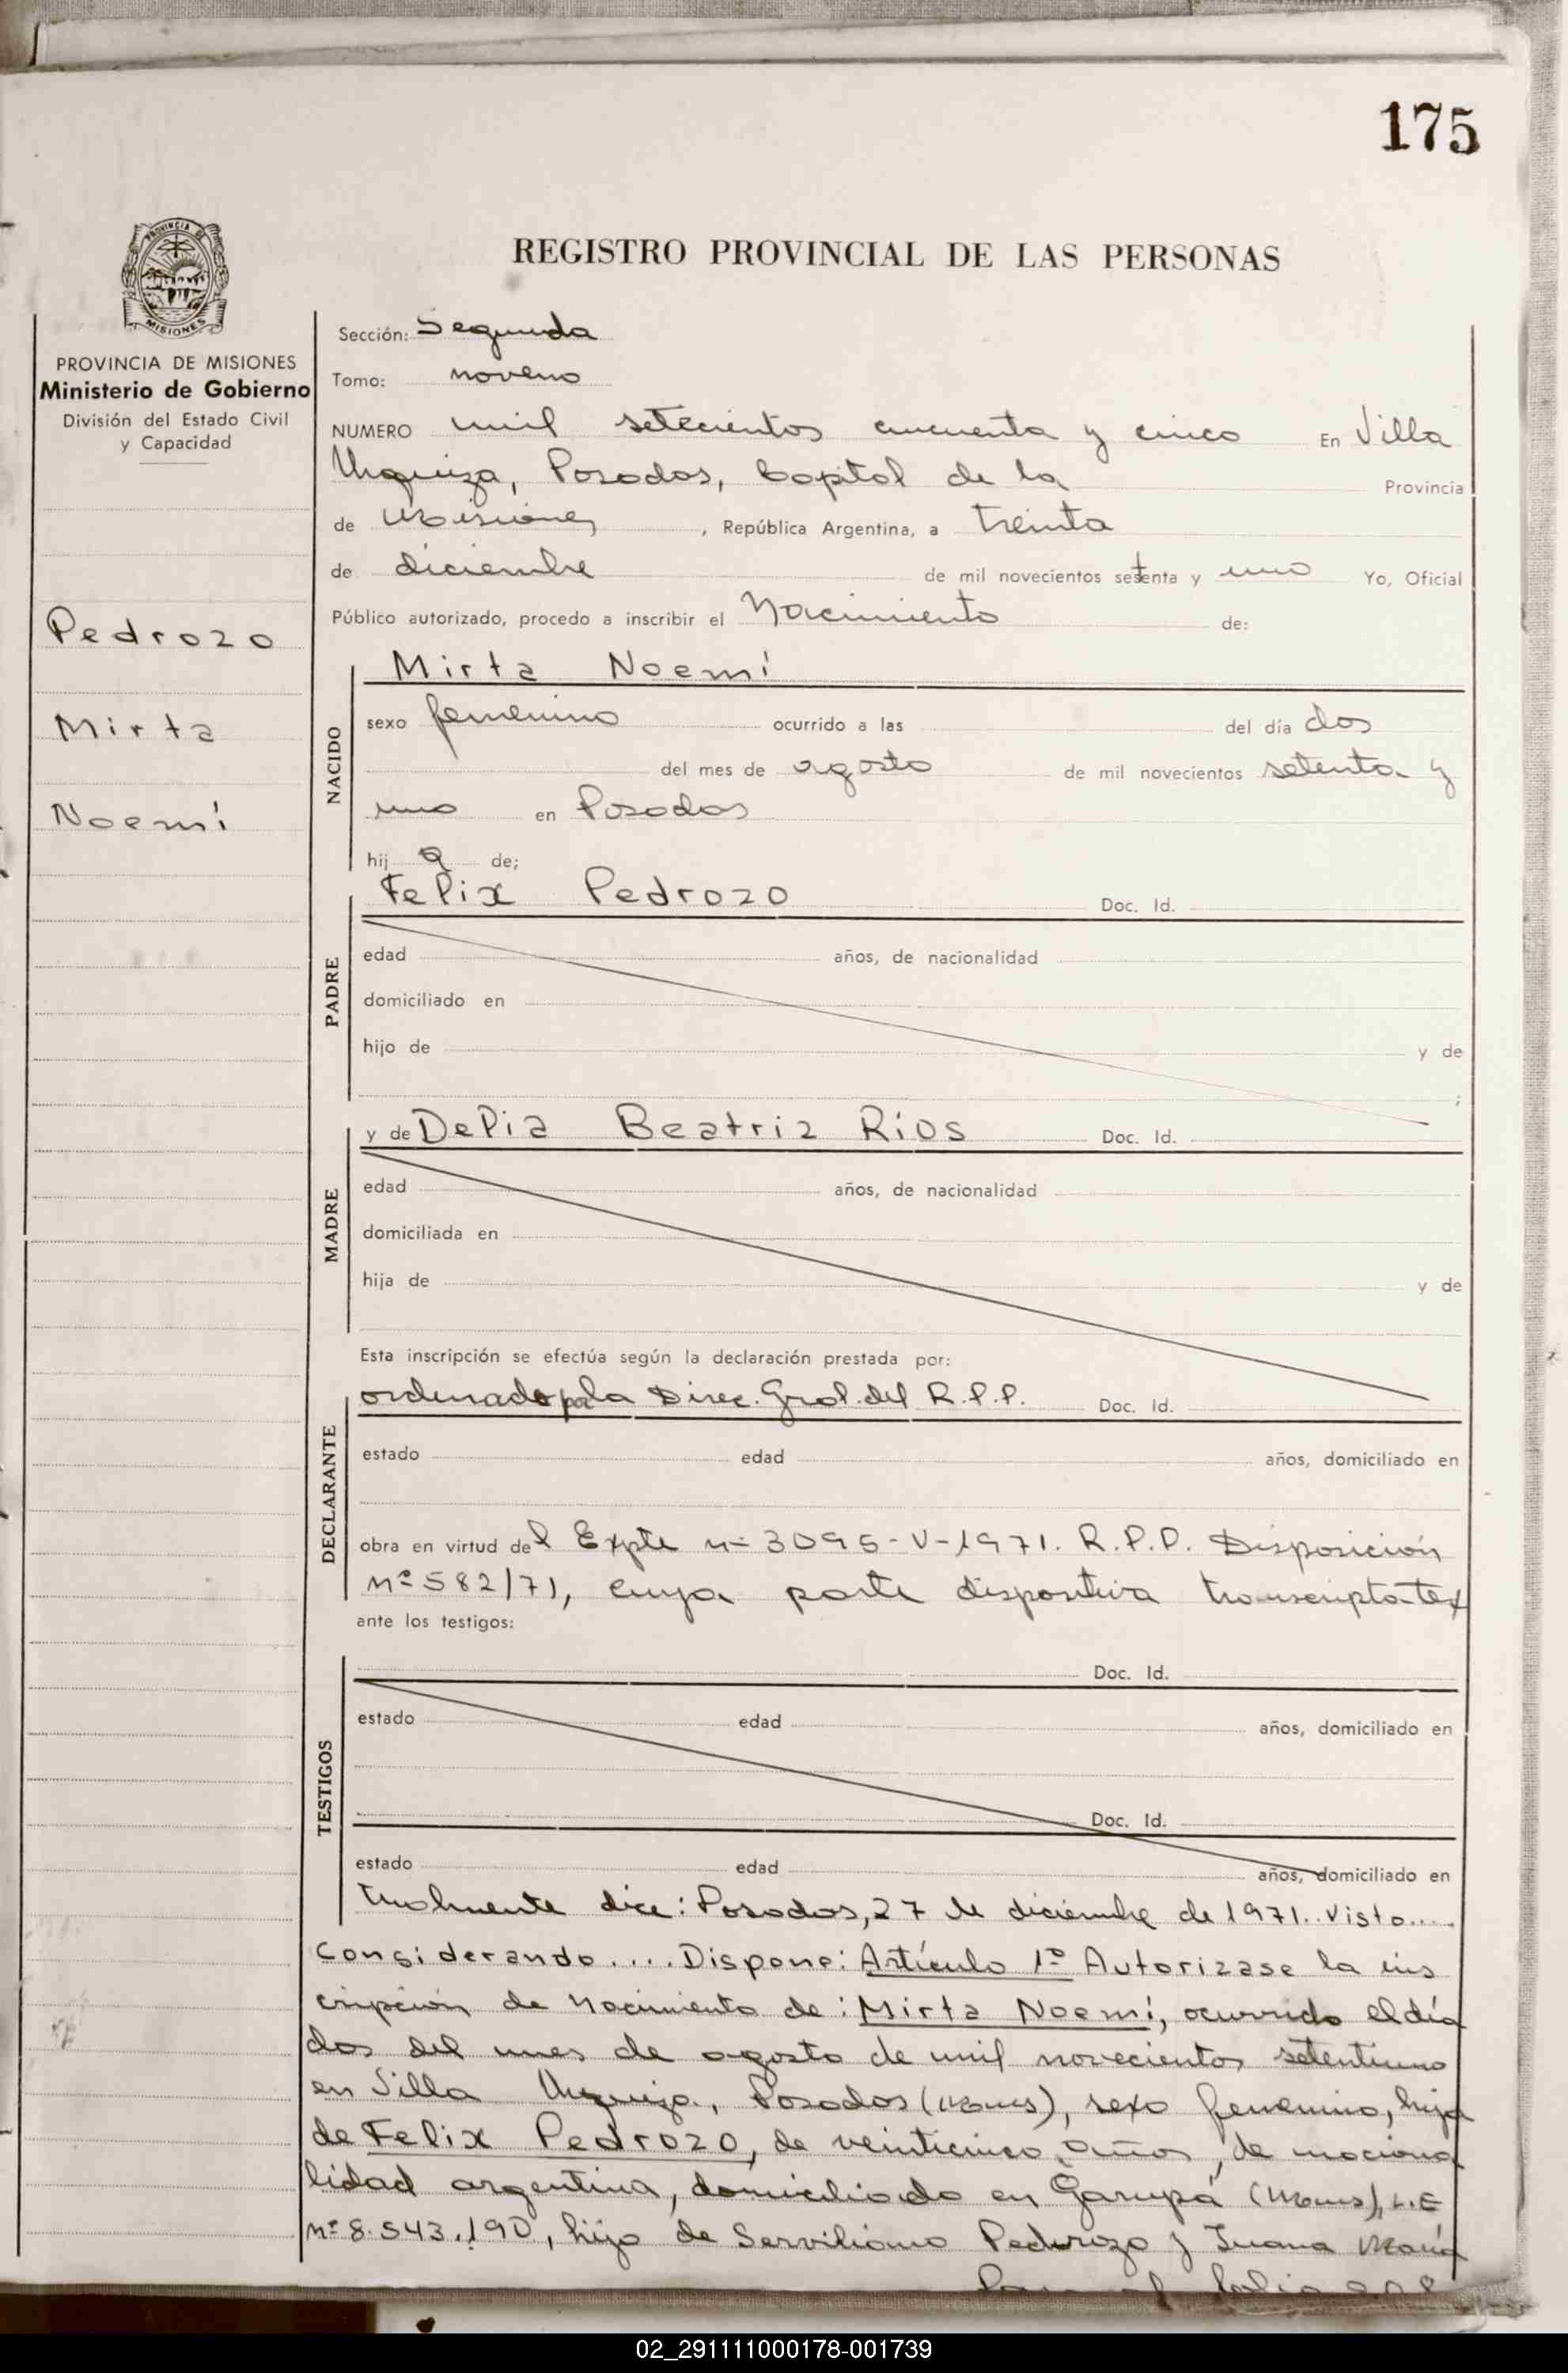 175
PROVINCIA DE
MISIONES
REGISTRO PROVINCIAL DE LAS PERSONAS
PROVINCIA DE MISIONES
Ministerio de Gobierno
División del Estado Civil
y Capacidad
Pedrozo
Mirta
Noemí
Sección: Segunda
Tomo: noveno
NUMERO mil setecientos cincuenta y cinco En Villa
Urquiza, Posadas, Capital de la Provincia
de Misiones, República Argentina, a treinta
de diciembre de mil novecientos setenta y uno Yo, Oficial
Público autorizado, procedo a inscribir el Nacimiento de:
NACIDO
Mirta Noemí
sexo femenino ocurrido a las del día dos
del mes de agosto de mil novecientos setenta y
uno en Posadas
hij a de;
PADRE
Felix Pedrozo Doc. Id.
edad años, de nacionalidad
domiciliado en
hijo de y de
;
MADRE
y de Delia Beatriz Ríos Doc. Id.
edad años, de nacionalidad
domiciliada en
hija de y de
Esta inscripción se efectúa según la declaración prestada por:
DECLARANTE
ordenado por la Direc. Gral. del R.P.P. Doc. Id.
estado edad años, domiciliado en
obra en virtud del Expte nº 3095-V-1971. R.P.P. Disposición
Nº 582/71, cuya parte dispositiva transcripta tex
ante los testigos:
TESTIGOS
Doc. Id.
estado edad años, domiciliado en
Doc. Id.
estado edad años, domiciliado en
tualmente dice: Posadas, 27 de diciembre de 1971.. Visto....
Considerando.... Dispone: Artículo 1º Autorizase la ins
cripción de nacimiento de: Mirta Noemí, ocurrido el día
dos del mes de agosto de mil novecientos setentiuno
en Villa Urquiza, Posadas (Mnes), sexo femenino, hija
de Felix Pedrozo, de veinticinco años, de naciona
lidad argentina, domiciliado en Garupá (Mnes), L.E
Nº 8.543.190, hijo de Serviliano Pedrozo y Juana María
02_291111000178-001739